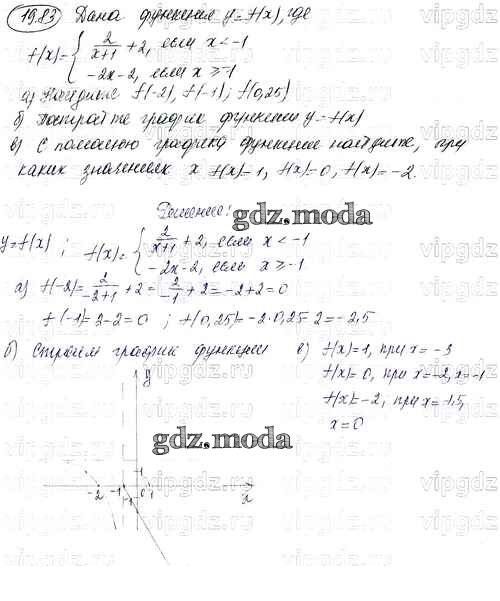 19.83 Дана функция y=f(x), где
f(x)= { 2/(x+1) + 2, если x < -1
-2x-2, если x ≥ -1
а) Найдите f(-2), f(-1); f(0,25)
б) Постройте график функции y=f(x)
в) С помощью графика функции найдите, при
каких значениях x f(x)=1, f(x)=0, f(x)=-2.
Решение:
gdz.moda
y=f(x) ; f(x)= { 2/(x+1) + 2, если x < -1
-2x-2, если x ≥ -1
а) f(-2)= 2/(-2+1) + 2 = 2/-1 + 2 = -2+2=0
f(-1)=2-2=0 ; f(0,25)=-2·0,25-2=-2,5
б) Строим график функции
в) f(x)=1, при x=-3
f(x)=0, при x=-2, x=-1
f(x)=-2, при x=-1,5,
x=0
y
gdz.moda
1
-2 -1 0 1 x
-1
vipgdz